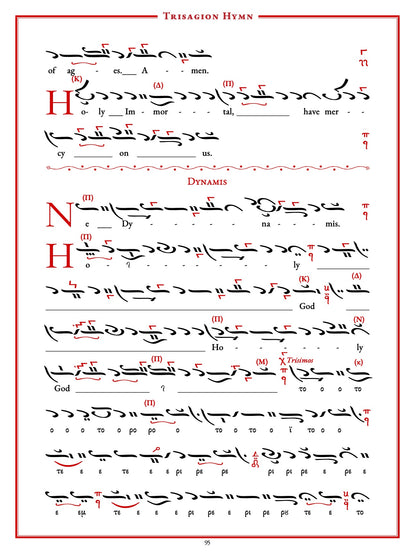 Trisagion Hymn
of ag - es.___ A - men.
(K) (Δ) (Π)
Ho- ly ___ Im - mor - tal, __________ have mer -
cy ________ on ____________ us.
Dynamis
(Π)
Ne ___ Dy - - - - - na - - mis.
(Π)
Ho - ? - - - - - ly ____________
(K) (Δ)
God ________
(Π) (N)
Ho - - - - - ly
(Π) (M) Trisimos (κ)
God __________ ? __________ το ο ο το
(Π)
ο ο ο το ο ρο ρο ο το ο το ο ϊ το ο ο
τε ε ε τε ε ε ρι ρε ρε ρι ρι ρε ε ρε ε
ε εμ τε ε ε ε ρι ε ρι ε ρε ρȣ τε ε το
95